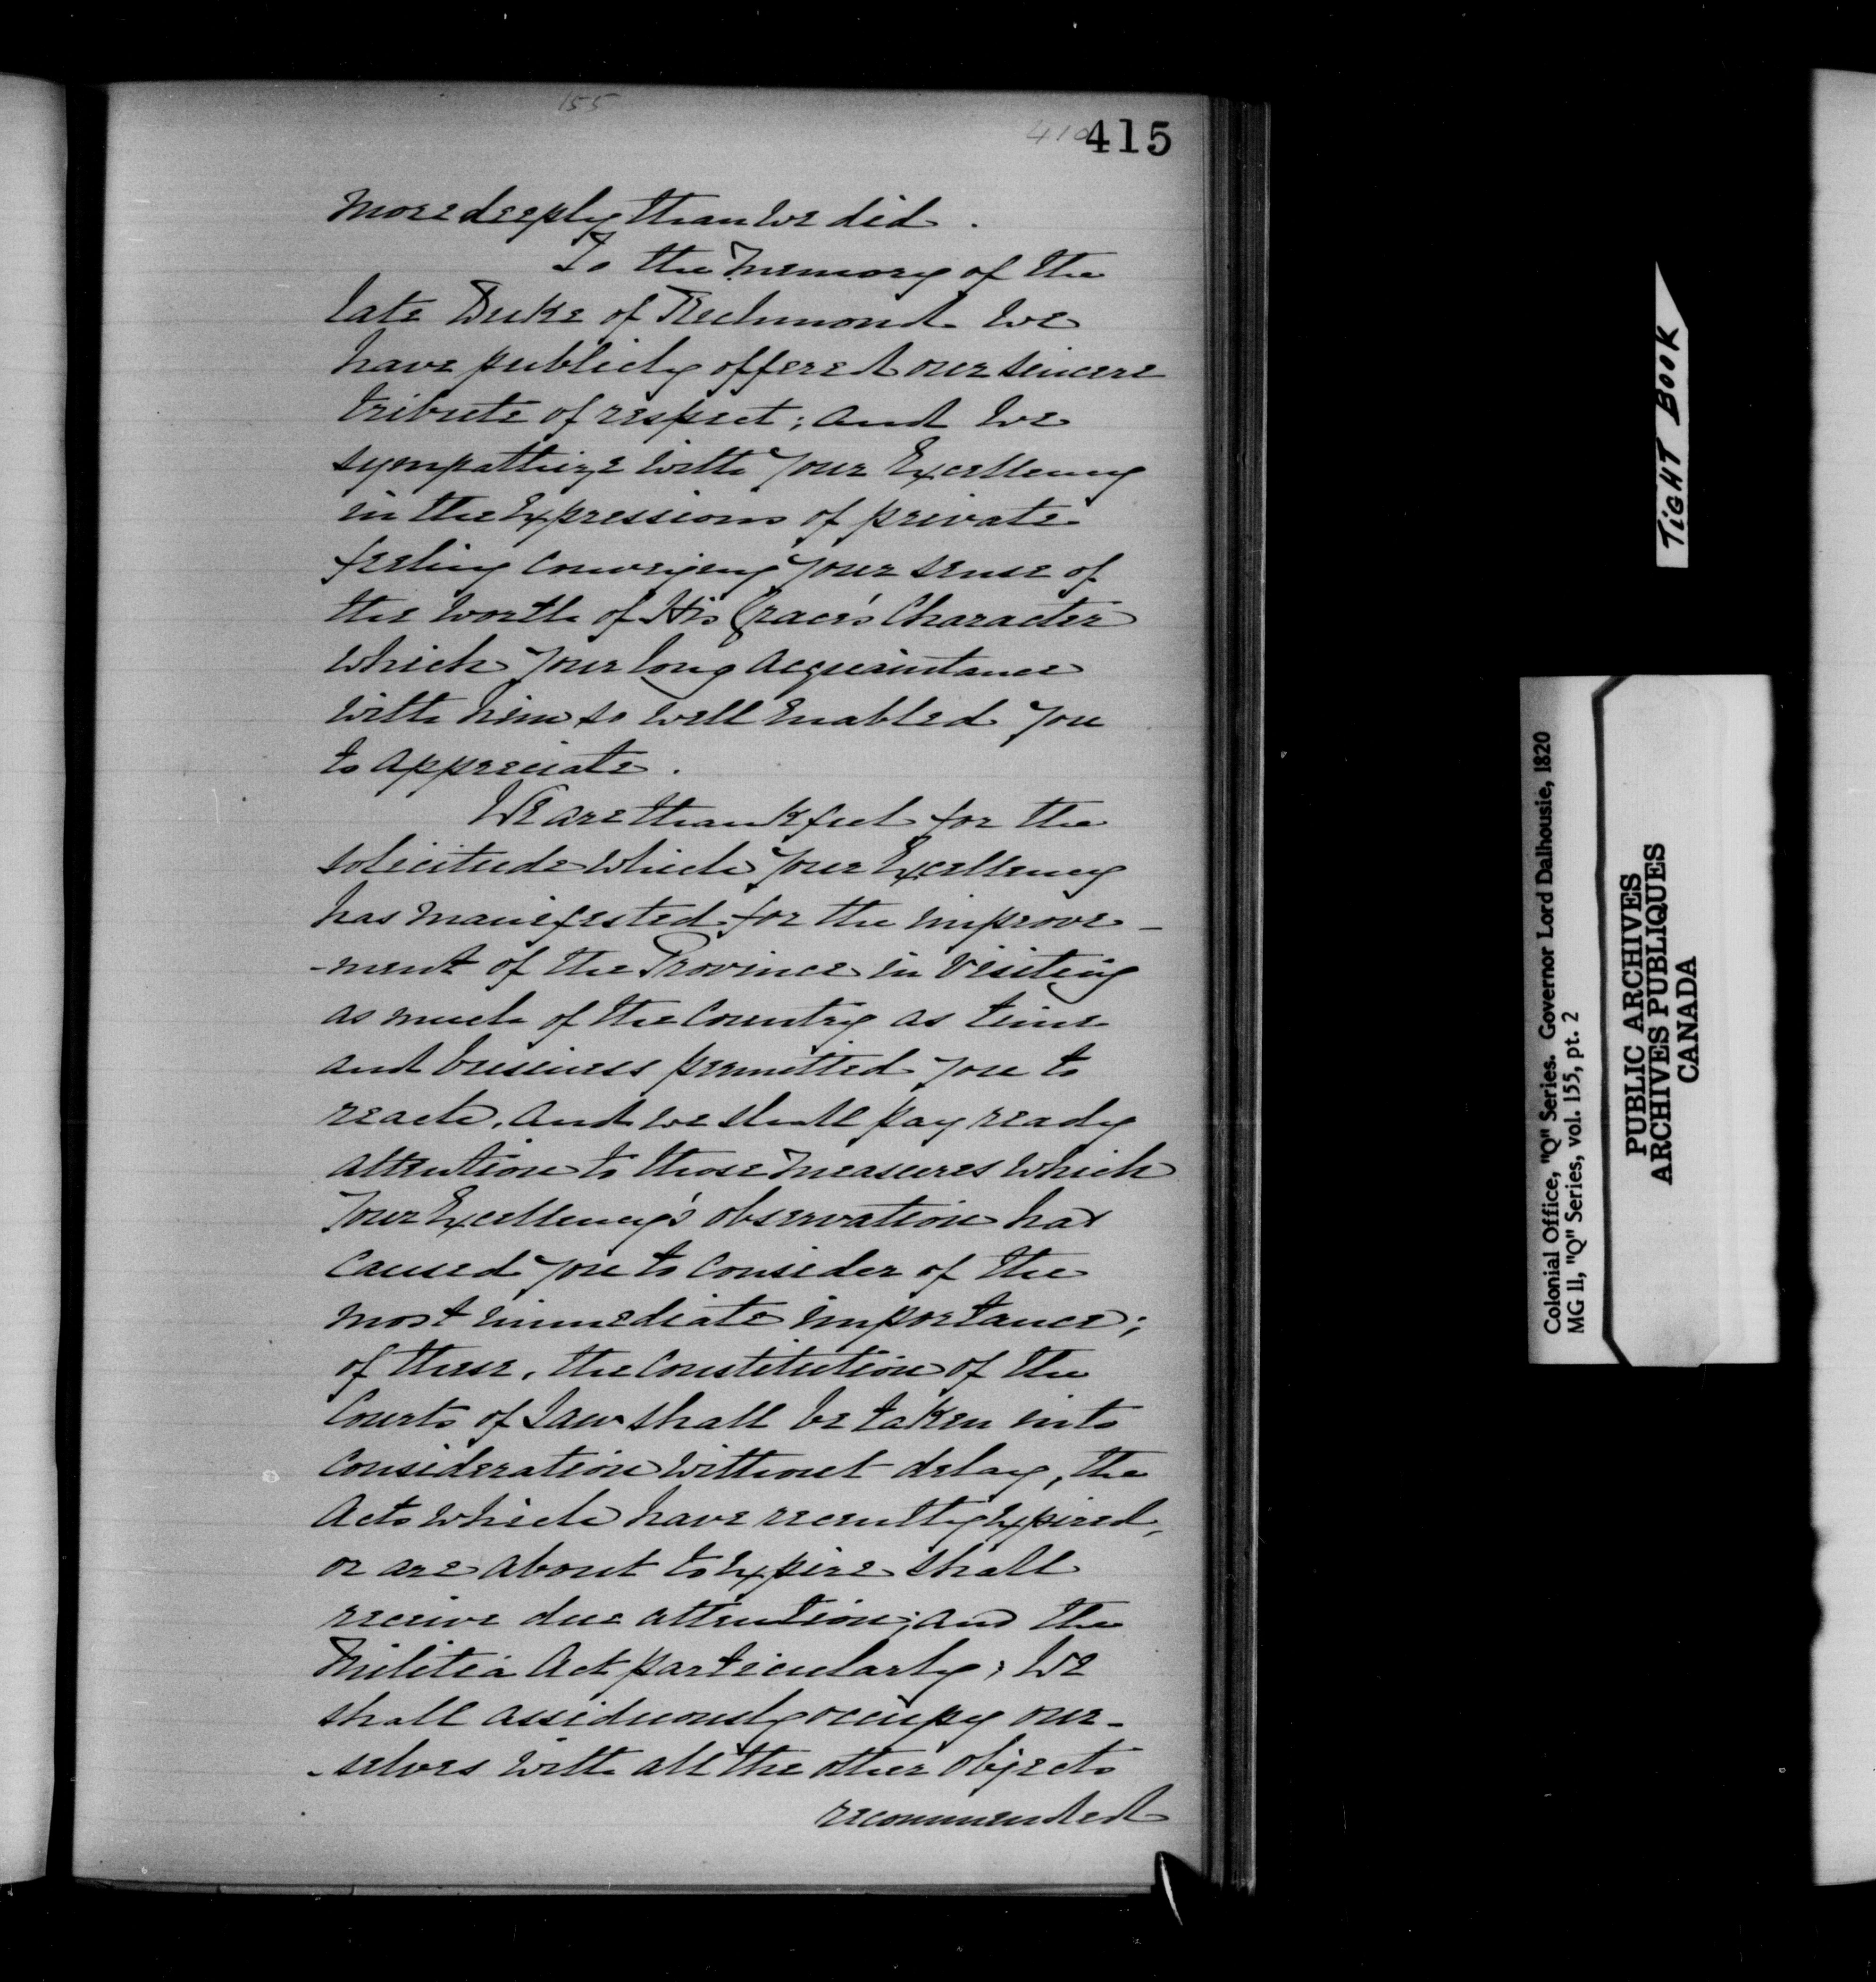 155
410 415
more deeply than we did.
To the Memory of the
late Duke of Richmond we
have publicly offered our sincere
tribute of respect; and we
sympathize with Your Excellency
in the Expressions of private
feeling conveying Your sense of
the worth of His Grace's Character
which Your long Acquaintance
with him so well Enabled You
to Appreciate.
We are thankful for the
solicitude which Your Excellency
has manifested for the improve-
-ment of the Province in Visiting
as much of the Country as time
and business permitted You to
reach, and we shall pay ready
attention to those measures which
Your Excellency's observation has
caused you to Consider of the
most immediate importance;
of these, the Constitution of the
Courts of Law shall be taken into
Consideration without delay, the
Acts which have recently Expired,
or are about to Expire shall
receive due attention; and the
Militia Act particularly; We
shall assiduously occupy our-
-selves with all the other Objects
recommended
TIGHT BOOK
Colonial Office, "Q" Series. Governor Lord Dalhousie, 1820
MG 11, "Q" Series, vol. 155, pt. 2
PUBLIC ARCHIVES
ARCHIVES PUBLIQUES
CANADA